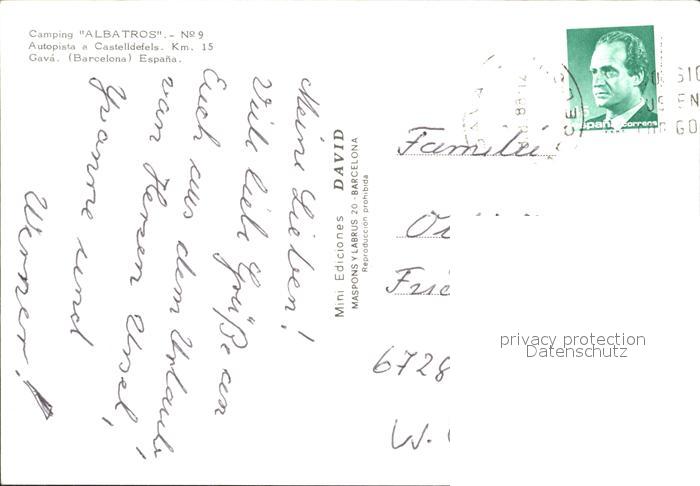 Camping "ALBATROS".- Nº 9
Autopista a Castelldefels. Km. 15
Gavá. (Barcelona) España.
Meine Lieben!
Viele liebe Grüße an
Euch aus dem Urlaub
von Herzen Ursel,
Yvonne und
Werner!
Mini Ediciones DAVID
MASPONS Y LABRUS 20 - BARCELONA
Reproducción prohibida
correos
Familie
6728
W.
privacy protection
Datenschutz